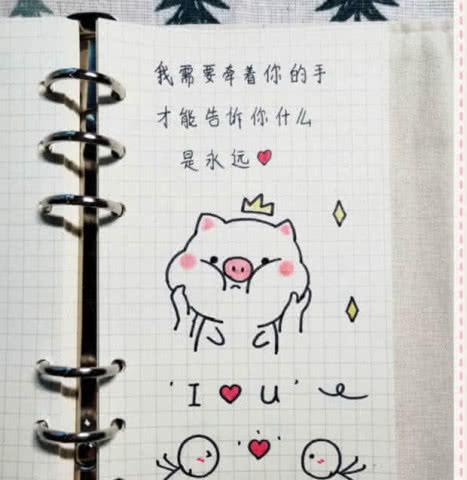 我需要牵着你的手
才能告诉你什么
是永远
I ♥ U